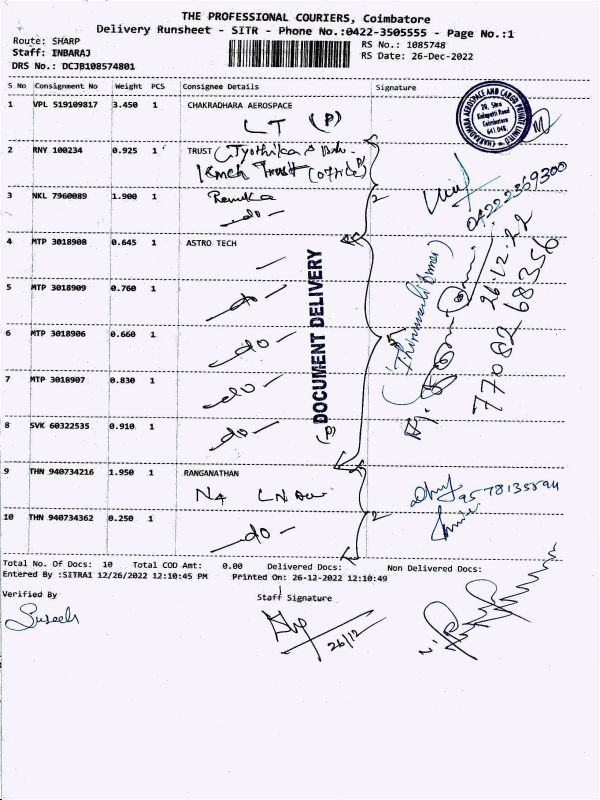 THE PROFESSIONAL COURIERS, Coimbatore
Delivery Runsheet - SITR - Phone No.:0422-3505555 - Page No.:1
Route: SHARP
RS No.: 1085748
Staff: INBARAJ
RS Date: 26-Dec-2022
DRS No.: DCJB108574801
S No Consignment No Weight PCS Consignee Details Signature
1 VPL 519109817 3.450 1 CHAKRADHARA AEROSPACE
LT (P)
CHAKRADHARA AEROSPACE AND CARGO PRIVATE LIMITED
Coimbatore
641 048
2 RNY 100234 0.925 1 TRUST
Kmch Trust (office)
04222369300
3 NKL 7960089 1.900 1 Renuka
do
2
4 MTP 3018908 0.645 1 ASTRO TECH
5 MTP 3018909 0.760 1
do
6 MTP 3018906 0.660 1
do
5
7 MTP 3018907 0.830 1
do
8 SVK 60322535 0.910 1
do
(P)
DOCUMENT DELIVERY
26.12.22
77082 68356
9 THN 940734216 1.950 1 RANGANATHAN
9578135894
10 THN 940734362 0.250 1
do
2
Total No. Of Docs: 10 Total COD Amt: 0.00 Delivered Docs: Non Delivered Docs:
Entered By :SITRA1 12/26/2022 12:10:45 PM Printed On: 26-12-2022 12:10:49
Verified By
Staff Signature
Suseela
26/12